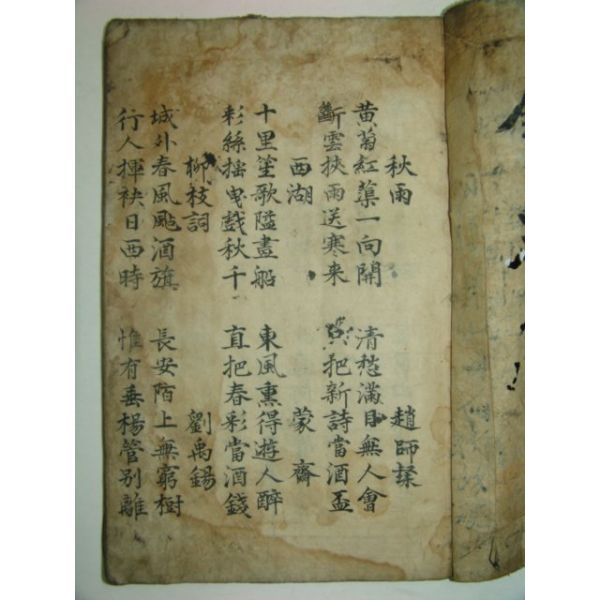 秋雨 趙師䅟
黃菊紅蕖一向開 清愁滿目無人會
斷雲挾雨送寒来 只把新詩當酒盃
西湖 蒙齋
十里笙歌隘畫船 東風熏得遊人醉
彩絲摇曳戲秋千 直把春彩當酒錢
柳枝詞 劉禹錫
城外春風颭酒旗 長安陌上無窮樹
行人揮袂日西時 惟有垂楊管别離